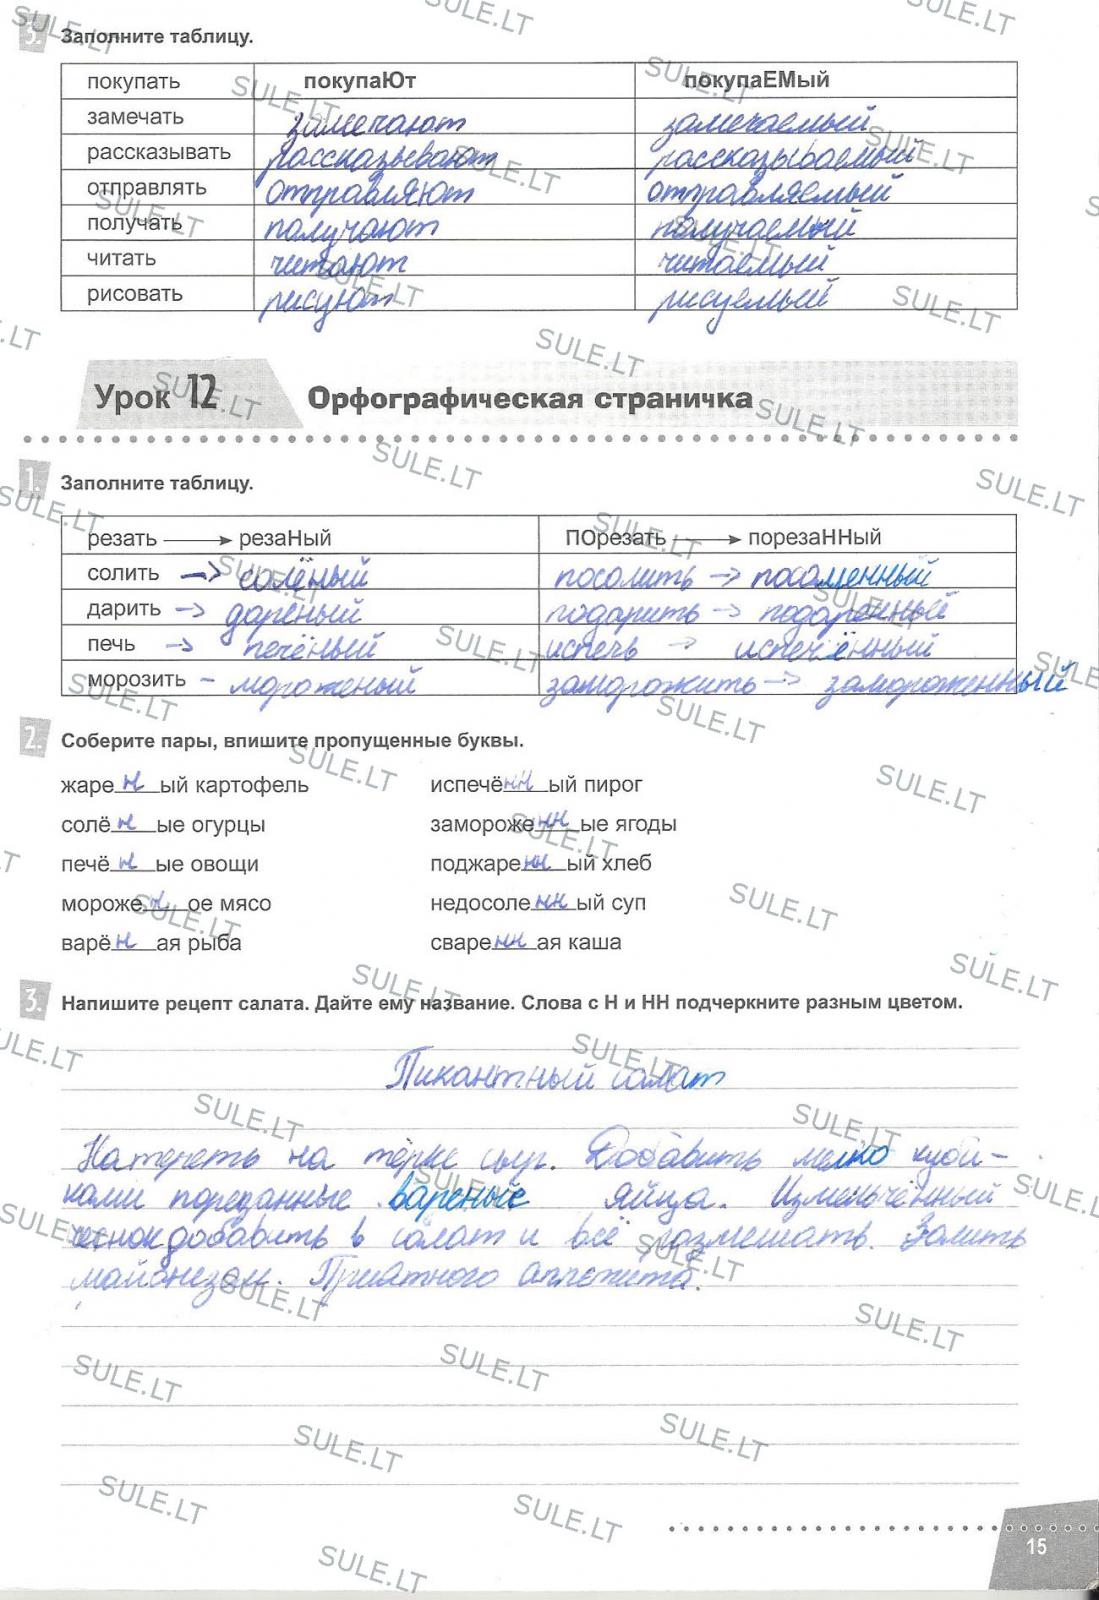 3. Заполните таблицу.
покупать покупаЮт покупаЕМый
замечать замечают замечаемый
рассказывать рассказывают рассказываемый
отправлять отправляют отправляемый
получать получают получаемый
читать читают читаемый
рисовать рисуют рисуемый
Урок 12 Орфографическая страничка
1. Заполните таблицу.
резать → резаНый ПОрезать → порезаННый
солить → солёный посолить →
дарить → дареный подарить → подаренный
печь → печёный испечь → испечённый
морозить - мороженый заморожить → замороженный
2. Соберите пары, впишите пропущенные буквы.
жареный картофель испечённый пирог
солёные огурцы замороженные ягоды
печёные овощи поджаренный хлеб
мороженое мясо недосоленный суп
варёная рыба сваренная каша
3. Напишите рецепт салата. Дайте ему название. Слова с Н и НН подчеркните разным цветом.
Пикантный салат
Натереть на тёрке сыр. Добавить мелко куби-
ками порезанные вареные яйца. Измельчённый
чеснок добавить в салат и всё размешать. Залить
майонезом. Приятного аппетита.
15
SULE.LT